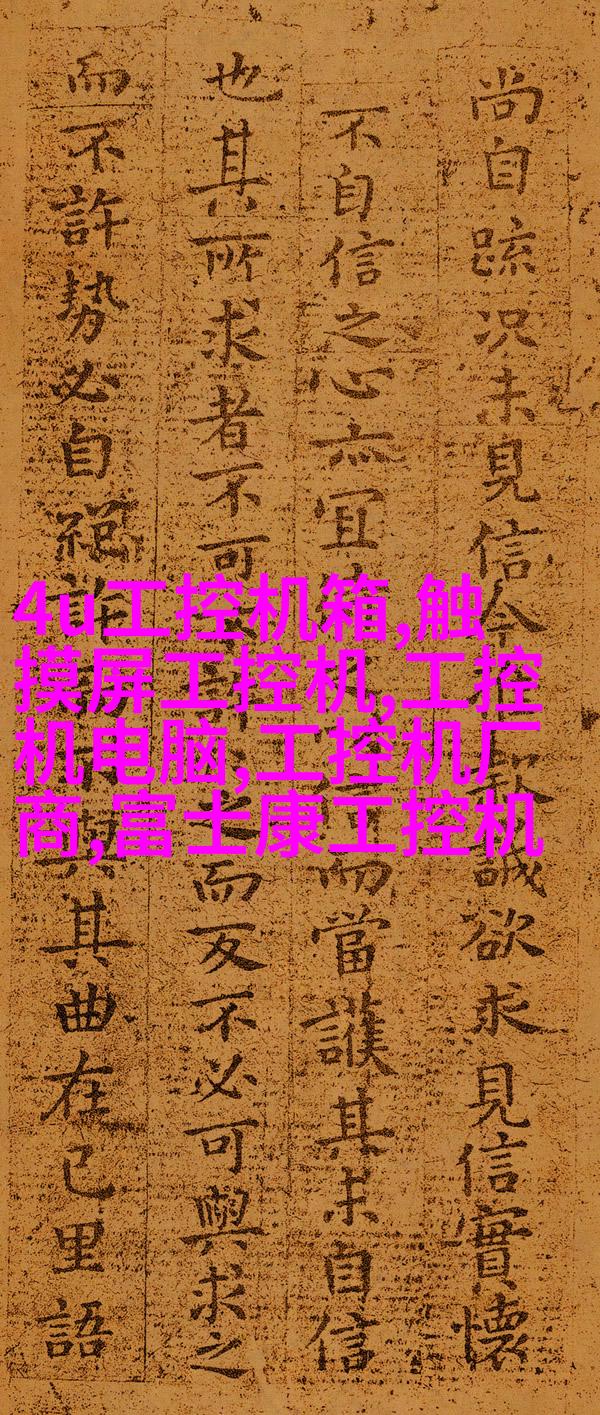 尚自疏况未見信今款誠欲求見信實懷
不自信之心亦宜而當護其未自信
也其所求者不可之而反不必可與求之
而不許勢必自絕許與其曲在己里語
4u工控机箱,触
摸屏工控机,工控
机电脑,工控机厂
商,富士康工控机